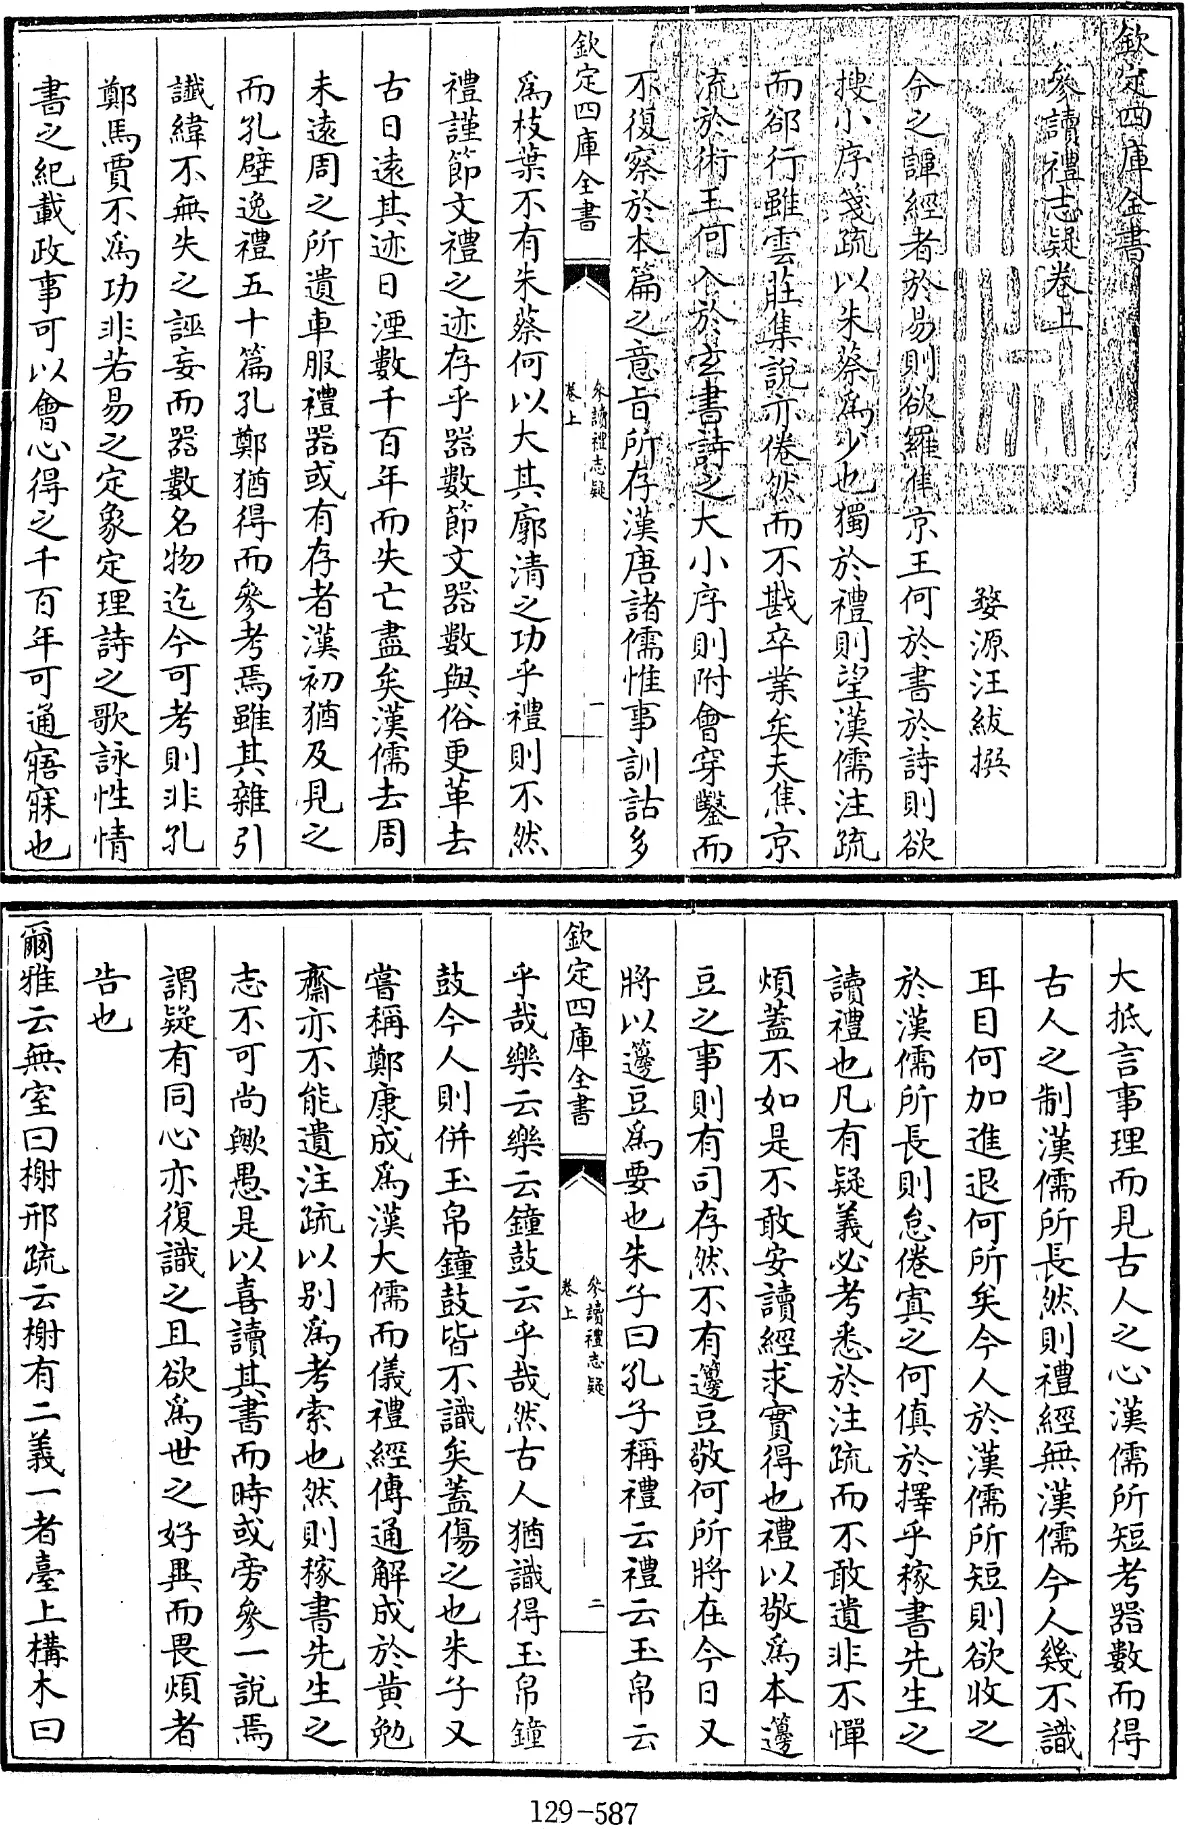 欽定四庫全書
參讀禮志疑卷上
婺源汪紱撰
今之譚經者於易則欲羅隹京王何於書於詩則欲
搜小序箋疏以朱蔡為少也獨於禮則望漢儒注疏
而郤行雖雲莊集說亦倦然而不戡卒業矣夫焦京
流於術王何入於𤣥書詩之大小序則附會穿鑿而
不復察於本篇之意旨所存漢唐諸儒惟事訓詁多
欽定四庫全書
參讀禮志疑
卷上
一
為枝葉不有朱蔡何以大其廓清之功乎禮則不然
禮謹節文禮之迹存乎器數節文器數與俗更革去
古日遠其迹日湮數千百年而失亡盡矣漢儒去周
未遠周之所遺車服禮器或有存者漢初猶及見之
而孔壁逸禮五十篇孔鄭猶得而參考焉雖其雜引
讖緯不無失之誣妄而器數名物迄今可考則非孔
鄭馬賈不為功非若易之定象定理詩之歌詠性情
書之紀載政事可以會心得之千百年可通寤寐也
大抵言事理而見古人之心漢儒所短考器數而得
古人之制漢儒所長然則禮經無漢儒今人幾不識
耳目何加進退何所矣今人於漢儒所短則欲收之
於漢儒所長則怠倦寘之何傎於擇乎稼書先生之
讀禮也凡有疑義必考悉於注疏而不敢遺非不憚
煩蓋不如是不敢安讀經求實得也禮以敬為本籩
豆之事則有司存然不有籩豆敬何所將在今日又
將以籩豆為要也朱子曰孔子稱禮云禮云玉帛云
欽定四庫全書
參讀禮志疑
卷上
二
乎哉樂云樂云鐘鼓云乎哉然古人猶識得玉帛鐘
鼓今人則併玉帛鐘鼓皆不識矣蓋傷之也朱子又
嘗稱鄭康成為漢大儒而儀禮經傳通解成於黃勉
齋亦不能遺注疏以別為考索也然則稼書先生之
志不可尚歟愚是以喜讀其書而時或旁參一說焉
謂疑有同心亦復識之且欲為世之好異而畏煩者
告也
爾雅云無室曰榭邢疏云榭有二義一者臺上構木曰
129-587